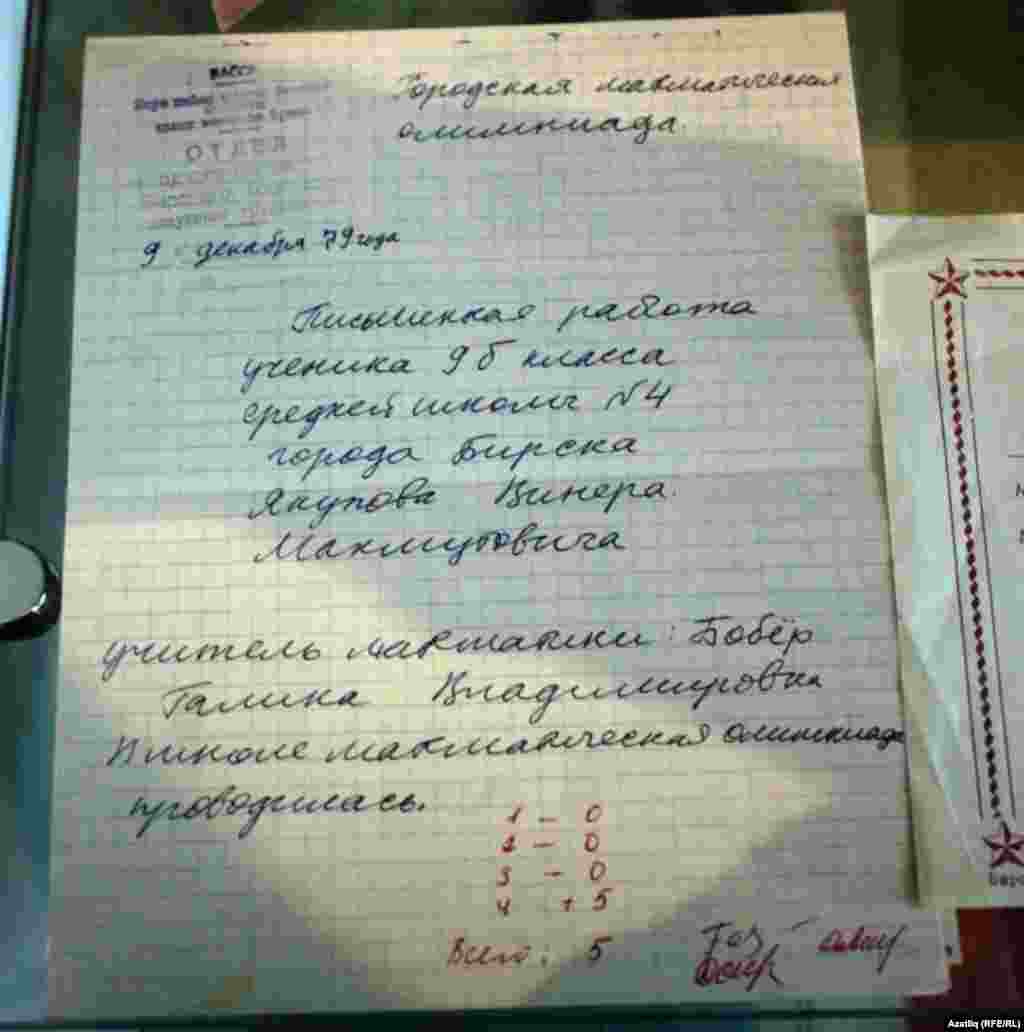 БАССР
Городская математическая
олимпиада.
9 декабря 79 года
Письменная работа
ученика 9 б класса
средней школы №4
города Бирска
Якупова Винера
Махмутовича
учитель математики: Бобёр
Галина Владимировна
В школе математическая олимпиада
проводилась.
1 - 0
2 - 0
3 - 0
4 + 5
Всего: 5
Azatliq (RFE/RL)